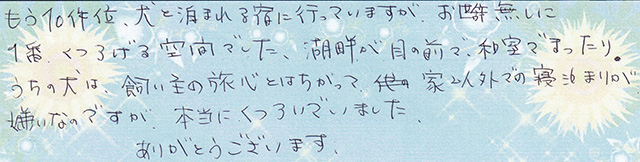 もう10件位、犬と泊まれる宿に行っていますが、お世辞無しに
1番、くつろげる空間でした、湖畔が目の前で、和室でまったり。
うちの犬は、飼い主の旅心とはちがって、家以外での寝泊まりが
嫌いなのですが、本当にくつろいでいました、
ありがとうございます、